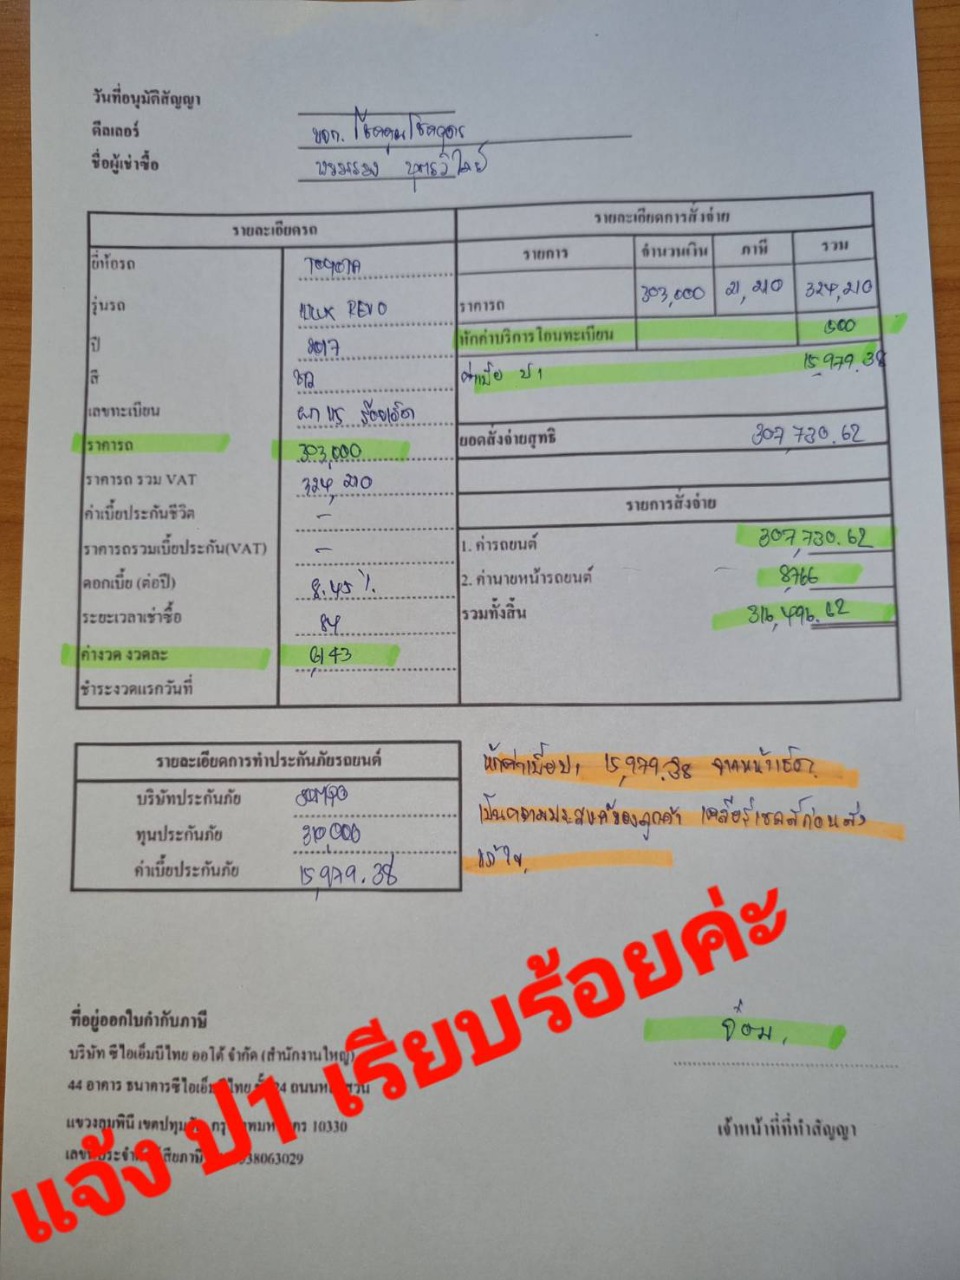 วันที่อนุมัติสัญญา
ดีลเลอร์ หจก. โชคคูนโชคถาวร
ชื่อผู้เช่าซื้อ
รายละเอียดรถ
ยี่ห้อรถ TOYOTA
รุ่นรถ REVO
ปี 2017
สี ขาว
เลขทะเบียน ร้อยเอ็ด
ราคารถ 303,000
ราคารถ รวม VAT 324,210
ค่าเบี้ยประกันชีวิต -
ราคารถรวมเบี้ยประกัน(VAT) -
ดอกเบี้ย (ต่อปี) 8.45 %
ระยะเวลาเช่าซื้อ 84
ค่างวด งวดละ 6,143
ชำระงวดแรกวันที่
รายละเอียดการสั่งจ่าย
รายการ จำนวนเงิน ภาษี รวม
ราคารถ 303,000 21,210 324,210
หักค่าบริการโอนทะเบียน 500
ค่าเบี้ย ป1 15,979.38
ยอดสั่งจ่ายสุทธิ 307,730.62
รายการสั่งจ่าย
1. ค่ารถยนต์ 307,730.62
2. ค่านายหน้ารถยนต์ 8,766
รวมทั้งสิ้น 316,496.62
รายละเอียดการทำประกันภัยรถยนต์
บริษัทประกันภัย
ทุนประกันภัย 310,000
ค่าเบี้ยประกันภัย 15,979.38
หักค่าเบี้ย ป1 15,979.38 จากหน้าเช็ค
เป็นความประสงค์ของลูกค้า เคลียร์เซลล์ก่อนส่ง
แล้ว
แจ้ง ป1 เรียบร้อยค่ะ
ที่อยู่ออกใบกำกับภาษี
บริษัท ซีไอเอ็มบีไทย ออโต้ จำกัด (สำนักงานใหญ่)
44 อาคาร ธนาคารซีไอเอ็มบีไทย ชั้น 24 ถนนหลังสวน
แขวงลุมพินี เขตปทุมวัน กรุงเทพมหานคร 10330
เจ้าหน้าที่ที่ทำสัญญา